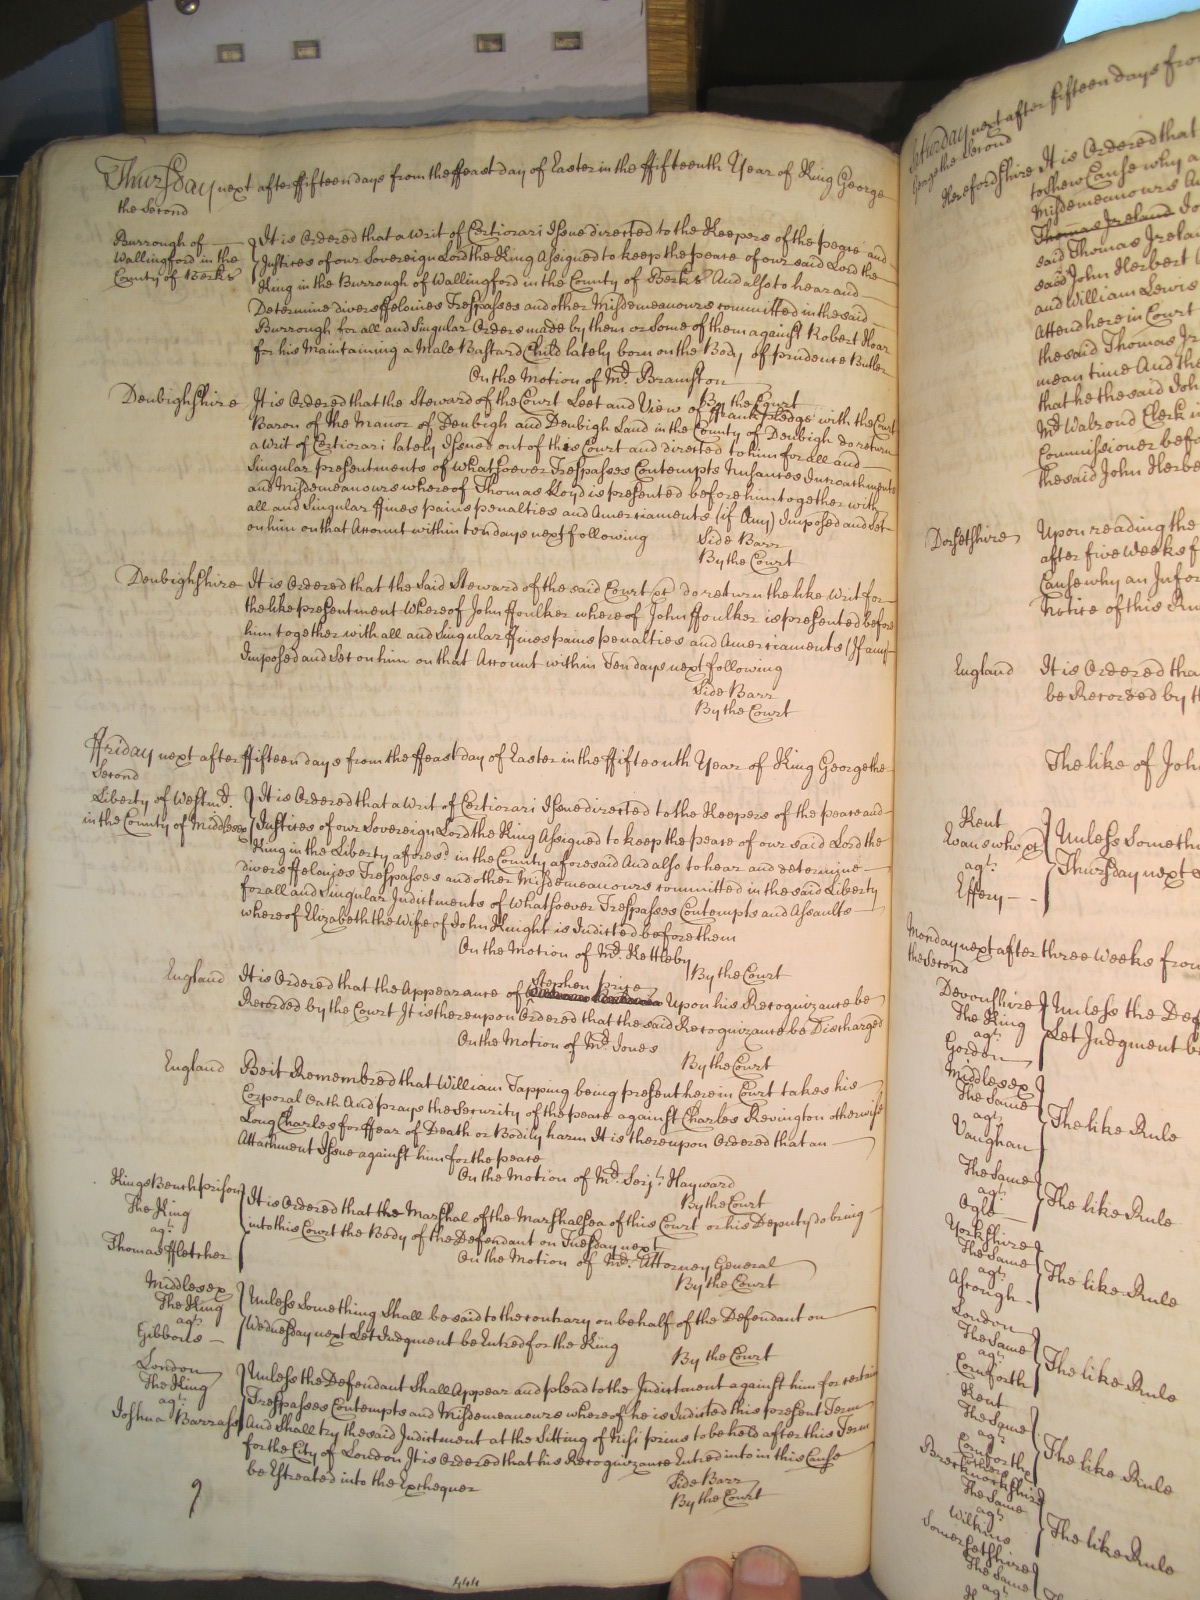 Thursday next after ffifteen days from the ffeast day of Easter in the ffifteenth Year of King George
the Second
Burrough of
Wallingford in the
County of Berks
It is Ordered that a Writ of Certiorari Issue directed to the Keepers of the peace and
Justices of our Sovereign Lord the King Assigned to keep the peace of our said Lord the
King in the Burrough of Wallingford in the County of Berks And also to hear and
Determine divers ffelonies Trespasses and other Misdemeanours committed in the said
Burrough for all and Singular Orders made by them or some of them against Robert Hoar
for his Maintaining a Male Bastard Child lately born on the Body of Prudence Butler
On the Motion of Mr. Bramston
By the Court
Denbighshire
It is Ordered that the Steward of the Court Leet and View of ffrank pledge with the Court
Baron of the Manor of Denbigh and Denbigh Land in the County of Denbigh do return
a Writ of Certiorari lately Issued out of this Court and directed to him for all and
Singular presentments of Whatsoever Trespasses Contempts Nusances Incroachments
and Misdemeanours whereof Thomas Lloyd is presented before him together with
all and Singular ffines pains penalties and Amerciaments (if Any) Imposed and Set
on him on that Account within ten days next following
Side Barr
By the Court
Denbighshire
It is Ordered that the Said Steward of the said Court &c do return the like Writ for
the like presentment Whereof John ffoulker where of John ffoulker is presented before
him together with all and Singular ffines pains penalties and Amerciaments (If any)
Imposed and Set on him on that Account within Ten days next following
Side Barr
By the Court
ffriday next after ffifteen days from the ffeast day of Easter in the ffifteenth Year of King George the
Second
Liberty of Westmr.
in the County of Middlesex
It is Ordered that a Writ of Certiorari Issue directed to the Keepers of the peace and
Justices of our Sovereign Lord the King Assigned to keep the peace of our said Lord the
King in the Liberty afores'd in the County aforesaid And also to hear and determine
divers ffelonies Trespasses and other Misdemeanours committed in the said Liberty
for all and Singular Indictments of Whatsoever Trespasses Contempts and Assaults
whereof Elizabeth the Wife of John Knight is Indicted before them
On the Motion of Mr. Kettleby
By the Court
England
Stephen Price
It is Ordered that the Appearance of Upon his Recognizance be
Recorded by the Court It is thereupon Ordered that the said Recognizance be Discharged
On the Motion of Mr. Jones
By the Court
England
Be it Remembred that William Tapping being present here in Court takes his
Corporal Oath And prays the Security of the peace against Charles Revington otherwise
Long Charles for ffear of Death or Bodily harm It is thereupon Ordered that an
Attachment Issue against him for the peace
On the Motion of Mr. Serjt. Hayward
By the Court
Kings Bench prison
The King
agt.
Thomas ffletcher
It is Ordered that the Marshal of the Marshalsea of this Court or his Deputy do bring
into this Court the Body of the Defendant on Tuesday next
On the Motion of Mr. Attorney General
By the Court
Middlesex
The King
agt.
Gibbons
Unless Something Shall be said to the contrary on behalf of the Defendant on
Wednesday next Let Judgment be Entred for the King
By the Court
London
The King
agt.
Joshua Barrass
Unless the Defendant Shall Appear and plead to the Indictment against him for certain
Trespasses Contempts and Misdemeanours whereof he is Indicted this present Term
And shall try the said Indictment at the Sitting of Nisi prius to be held after this Term
for the City of London It is Ordered that his Recognizance Entred into in this Cause
be Estreated into the Exchequer
Side Barr
By the Court
444
Saturday next after fifteen days from
George the Second
Herefordshire
It is Ordered that
to Shew Cause why a
Misdemeanours
Thomas Ireland
said Thomas Irelan
said John Herbert
and William Lewis
Attend here in Court
the said Thomas Ir
mean time And the
that he the said Joh
Mr Walrond Clerk
Commissioner befo
the said John Herbe
Dorsetshire
Upon reading the
after five Weeks f
Cause why an Infor
Notice of this Ru
England
It is Ordered tha
be Recorded by th
The like of John
Kent
Evans who &c
agt.
Effery
Unless Someth
Thursday next
Monday next after three Weeks from
the Second
Devonshire
The King
agt.
Gordon
Unless the Def
Let Judgment b
Middlesex
The Same
agt.
Vaughan
The like Rule
The Same
agt.
Ogle
The like Rule
Yorkshire
The Same
agt.
Ascough
The like Rule
London
The Same
agt.
Comforth
The like Rule
Kent
The Same
agt.
Comforth
The like Rule
Brecknockshire
The Same
agt.
Wilkins
The like Rule
Somersetshire
The Same
agt.